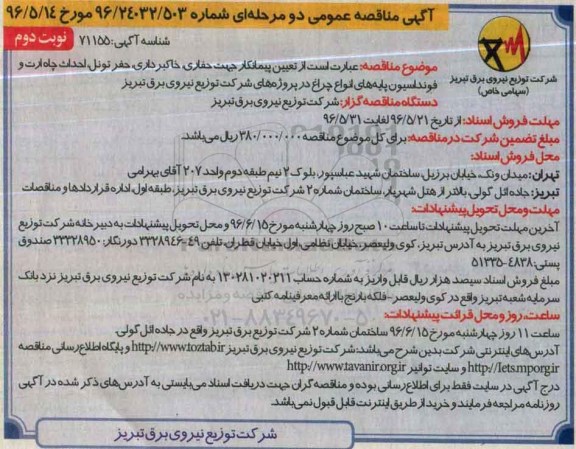 آگهی مناقصه عمومی دو مرحله‌ای شماره ۹۶/۲۴۰۳۲/۵۰۳ مورخ ۹۶/۵/۱۴
شناسه آگهی: ۷۱۱۵۵
نوبت دوم
شرکت توزیع نیروی برق تبریز
(سهامی خاص)
موضوع مناقصه: عبارت است از تعیین پیمانکار جهت حفاری، خاکبرداری، حفر تونل، احداث چاه ارت و
فونداسیون پایه‌های انواع چراغ در پروژه‌های شرکت توزیع نیروی برق تبریز
دستگاه مناقصه گزار: شرکت توزیع نیروی برق تبریز
مهلت فروش اسناد: از تاریخ ۹۶/۵/۲۱ لغایت ۹۶/۵/۳۱
مبلغ تضمین شرکت در مناقصه: برای کل موضوع مناقصه ۳۸۰/۰۰۰/۰۰۰ ریال می‌باشد.
محل فروش اسناد:
تهران: میدان ونک، خیابان برزیل، ساختمان شهید عباسپور، بلوک ۲ نیم طبقه دوم واحد ۲۰۷ آقای بهرامی
تبریز: جاده ائل گولی، بالاتر از هتل شهریار، ساختمان شماره ۲ شرکت توزیع نیروی برق تبریز، طبقه اول، اداره قراردادها و مناقصات
مهلت و محل تحویل پیشنهادات:
آخرین مهلت تحویل پیشنهادات تا ساعت ۱۰ صبح روز چهارشنبه مورخ ۹۶/۶/۱۵ و محل تحویل پیشنهادات به دبیرخانه شرکت توزیع
نیروی برق تبریز به آدرس تبریز، کوی ولیعصر، خیابان نظامی، اول خیابان قطران، تلفن ۴۹-۳۳۲۸۹۴۶ دورنگار: ۳۳۳۲۸۹۵۰ صندوق
پستی: ۴۸۳۸-۵۱۳۳۵
مبلغ فروش اسناد سیصد هزار ریال قابل واریز به شماره حساب ۱۳۰۲۸۱۰۲۰۲۱۱ به نام شرکت توزیع نیروی برق تبریز نزد بانک
سرمایه شعبه تبریز واقع در کوی ولیعصر - فلکه بارنج با ارائه معرفینامه کتبی
ساعت، روز و محل قرائت پیشنهادات:
ساعت ۱۱ روز چهارشنبه مورخ ۹۶/۶/۱۵ ساختمان شماره ۲ شرکت توزیع برق تبریز واقع در جاده ائل گولی.
آدرس‌های اینترنتی شرکت بدین شرح می‌باشد: شرکت توزیع نیروی برق تبریز http://www.toztab.ir و پایگاه اطلاع رسانی مناقصه
http://iets.mporg.ir و سایت توانیر http://www.tavanir.org.ir
درج آگهی در سایت فقط برای اطلاع رسانی بوده و مناقصه گران جهت دریافت اسناد می‌بایستی به آدرس‌های ذکر شده در آگهی
روزنامه مراجعه فرمایند و خرید از طریق اینترنت قابل قبول نمی‌باشد.
شرکت توزیع نیروی برق تبریز
۰۲۱-۸۸۳۴۹۶۷۰-۵